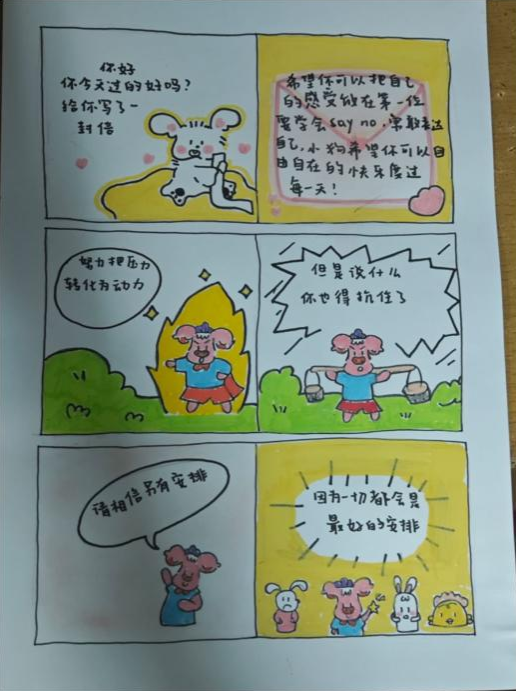 你好
你今天过的好吗?
给你写了一
封信
希望你可以把自己
的感受放在第一位
要学会say no.勇敢表达
自己,小狗希望你可以自
由自在的快乐度过
每一天!
努力把压力
转化为动力
但是说什么
你也得抗住了
请相信另有安排
因为一切都会是
最好的安排